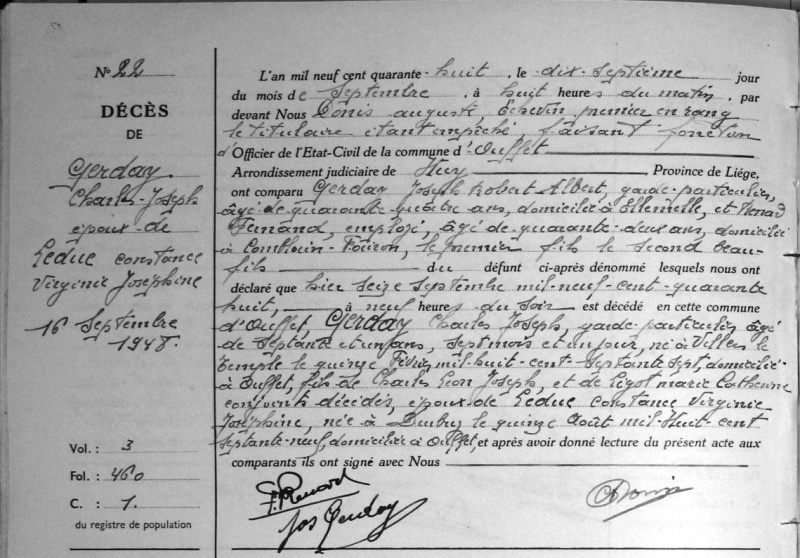 N° 22
DÉCÈS
DE
Gerday
Charles Joseph
époux de
Leduc Constance
Virginie Josephine
16 Septembre
1948.
Vol. : 3
Fol. : 460
C. : 1.
du registre de population
L'an mil neuf cent quarante-huit, le dix-septième jour
du mois de Septembre, à huit heures du matin, par
devant Nous Donis auguste, Echevin premier en rang
le titulaire étant empêché, faisant fonction
d'Officier de l'Etat-Civil de la commune d'Ouffet
Arrondissement judiciaire de Huy Province de Liége,
ont comparu Gerday Joseph Robert Albert, garde-particulier,
âgé de quarante quatre ans, domicilié à Ellemelle, et Renard
Fernand, employé, âgé de quarante-deux ans, domicilié
à Comblain-Fairon, le premier fils le second beau-
fils du défunt ci-après dénommé lesquels nous ont
déclaré que hier seize septembre mil-neuf-cent-quarante
huit, à neuf heures du soir est décédé en cette commune
d'Ouffet, Gerday Charles Joseph, garde-particulier, âgé
de septante et un ans, sept mois et un jour, né à Villers le
Temple le quinze Février mil-huit-cent-septante sept, domicilié
à Ouffet, fils de Charles Léon Joseph, et de Ligot marie Catherine
conjoints décédés, époux de Leduc Constance Virginie
Joséphine, née à le quinze Août mil-Huit-cent
septante-neuf, domiciliée à Ouffet, et après avoir donné lecture du présent acte aux
comparants ils ont signé avec Nous
F. Renard
Jos Gerday
Donis